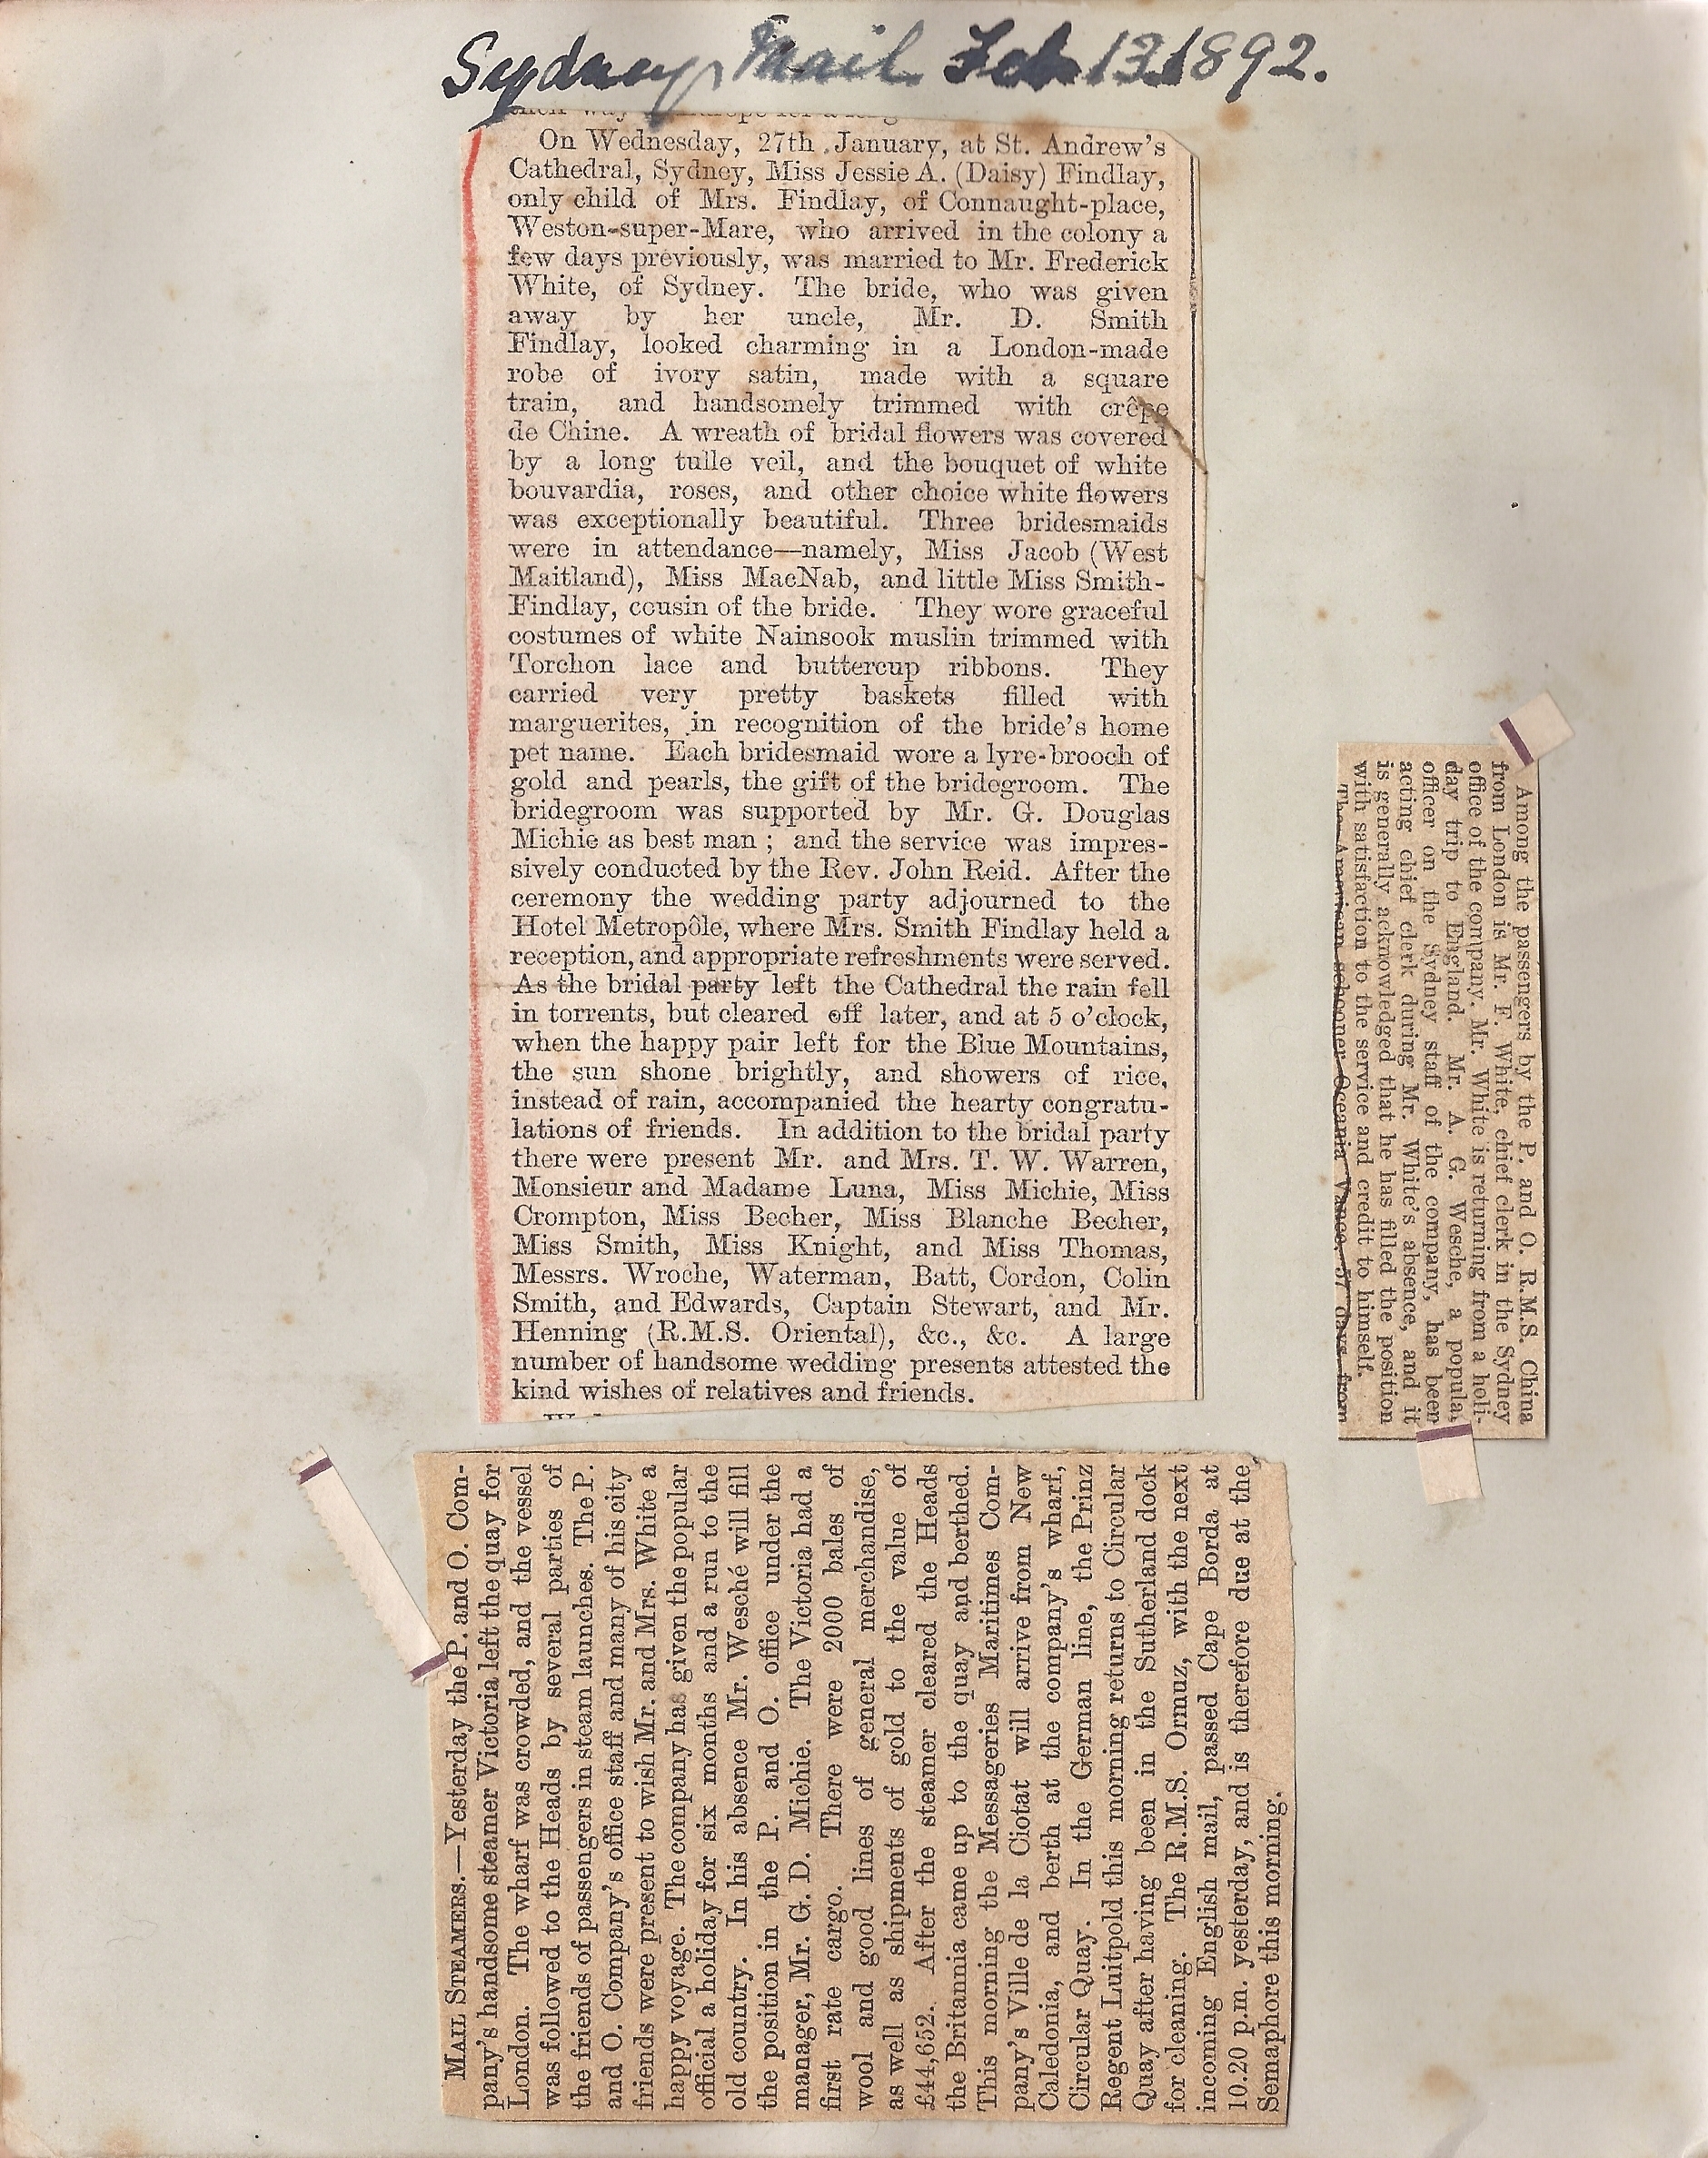 Sydney Mail Feb 13 1892.
On Wednesday, 27th January, at St. Andrew's
Cathedral, Sydney, Miss Jessie A. (Daisy) Findlay,
only child of Mrs. Findlay, of Connaught-place,
Weston-super-Mare, who arrived in the colony a
few days previously, was married to Mr. Frederick
White, of Sydney. The bride, who was given
away by her uncle, Mr. D. Smith
Findlay, looked charming in a London-made
robe of ivory satin, made with a square
train, and handsomely trimmed with crêpe
de Chine. A wreath of bridal flowers was covered
by a long tulle veil, and the bouquet of white
bouvardia, roses, and other choice white flowers
was exceptionally beautiful. Three bridesmaids
were in attendance—namely, Miss Jacob (West
Maitland), Miss MacNab, and little Miss Smith-
Findlay, cousin of the bride. They wore graceful
costumes of white Nainsook muslin trimmed with
Torchon lace and buttercup ribbons. They
carried very pretty baskets filled with
marguerites, in recognition of the bride's home
pet name. Each bridesmaid wore a lyre-brooch of
gold and pearls, the gift of the bridegroom. The
bridegroom was supported by Mr. G. Douglas
Michie as best man ; and the service was impres-
sively conducted by the Rev. John Reid. After the
ceremony the wedding party adjourned to the
Hotel Metropôle, where Mrs. Smith Findlay held a
reception, and appropriate refreshments were served.
As the bridal party left the Cathedral the rain fell
in torrents, but cleared off later, and at 5 o'clock,
when the happy pair left for the Blue Mountains,
the sun shone brightly, and showers of rice,
instead of rain, accompanied the hearty congratu-
lations of friends. In addition to the bridal party
there were present Mr. and Mrs. T. W. Warren,
Monsieur and Madame Luna, Miss Michie, Miss
Crompton, Miss Becher, Miss Blanche Becher,
Miss Smith, Miss Knight, and Miss Thomas,
Messrs. Wroche, Waterman, Batt, Cordon, Colin
Smith, and Edwards, Captain Stewart, and Mr.
Henning (R.M.S. Oriental), &c., &c. A large
number of handsome wedding presents attested the
kind wishes of relatives and friends.
Among the passengers by the P. and O. R.M.S. China
from London is Mr. F. White, chief clerk in the Sydney
office of the company. Mr. White is returning from a holi-
day trip to England. Mr. A. G. Wesche, a popular
officer on the Sydney staff of the company, has been
acting chief clerk during Mr. White's absence, and it
is generally acknowledged that he has filled the position
with satisfaction to the service and credit to himself.
The American schooner Oceania Vance, 57 days from
MAIL STEAMERS.—Yesterday the P. and O. Com-
pany's handsome steamer Victoria left the quay for
London. The wharf was crowded, and the vessel
was followed to the Heads by several parties of
the friends of passengers in steam launches. The P.
and O. Company's office staff and many of his city
friends were present to wish Mr. and Mrs. White a
happy voyage. The company has given the popular
official a holiday for six months and a run to the
old country. In his absence Mr. Wesché will fill
the position in the P. and O. office under the
manager, Mr. G. D. Michie. The Victoria had a
first rate cargo. There were 2000 bales of
wool and good lines of general merchandise,
as well as shipments of gold to the value of
£44,652. After the steamer cleared the Heads
the Britannia came up to the quay and berthed.
This morning the Messageries Maritimes Com-
pany's Ville de la Ciotat will arrive from New
Caledonia, and berth at the company's wharf,
Circular Quay. In the German line, the Prinz
Regent Luitpold this morning returns to Circular
Quay after having been in the Sutherland dock
for cleaning. The R.M.S. Ormuz, with the next
incoming English mail, passed Cape Borda at
10.20 p.m. yesterday, and is therefore due at the
Semaphore this morning.